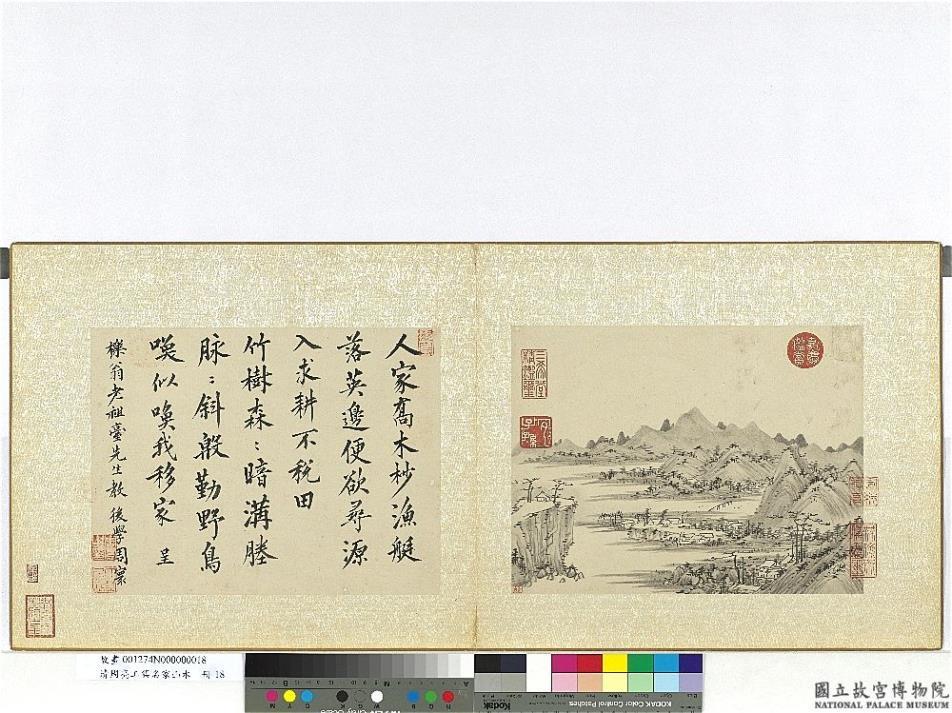 乾隆鑑賞
三希堂精鑑璽
宜子孫
人家喬木杪漁艇
落英邊便欲尋源
入求耕不稅田
竹樹森〻暗溝塍
脉〻斜殷勤野鳥
喚似喚我移家 呈
櫟翁老祖臺先生教 後學周
故畫 001274N000000018
清周亮工集名家山水 冊 18
Kodak
KODAK Color Control Patches
國立故宮博物院
NATIONAL PALACE MUSEUM